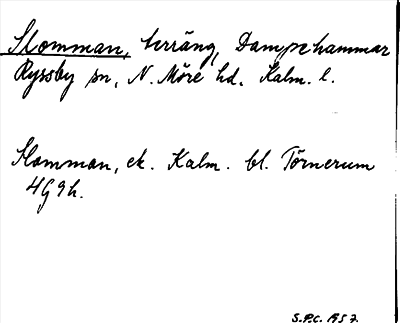 Slomman, terräng, Dampehammar
Ryssby sn, N. Möre hd. Kalm. l.
Slomman, ek. Kalm. bl. Törnerum
4G9h.
S.P.C. 1957.